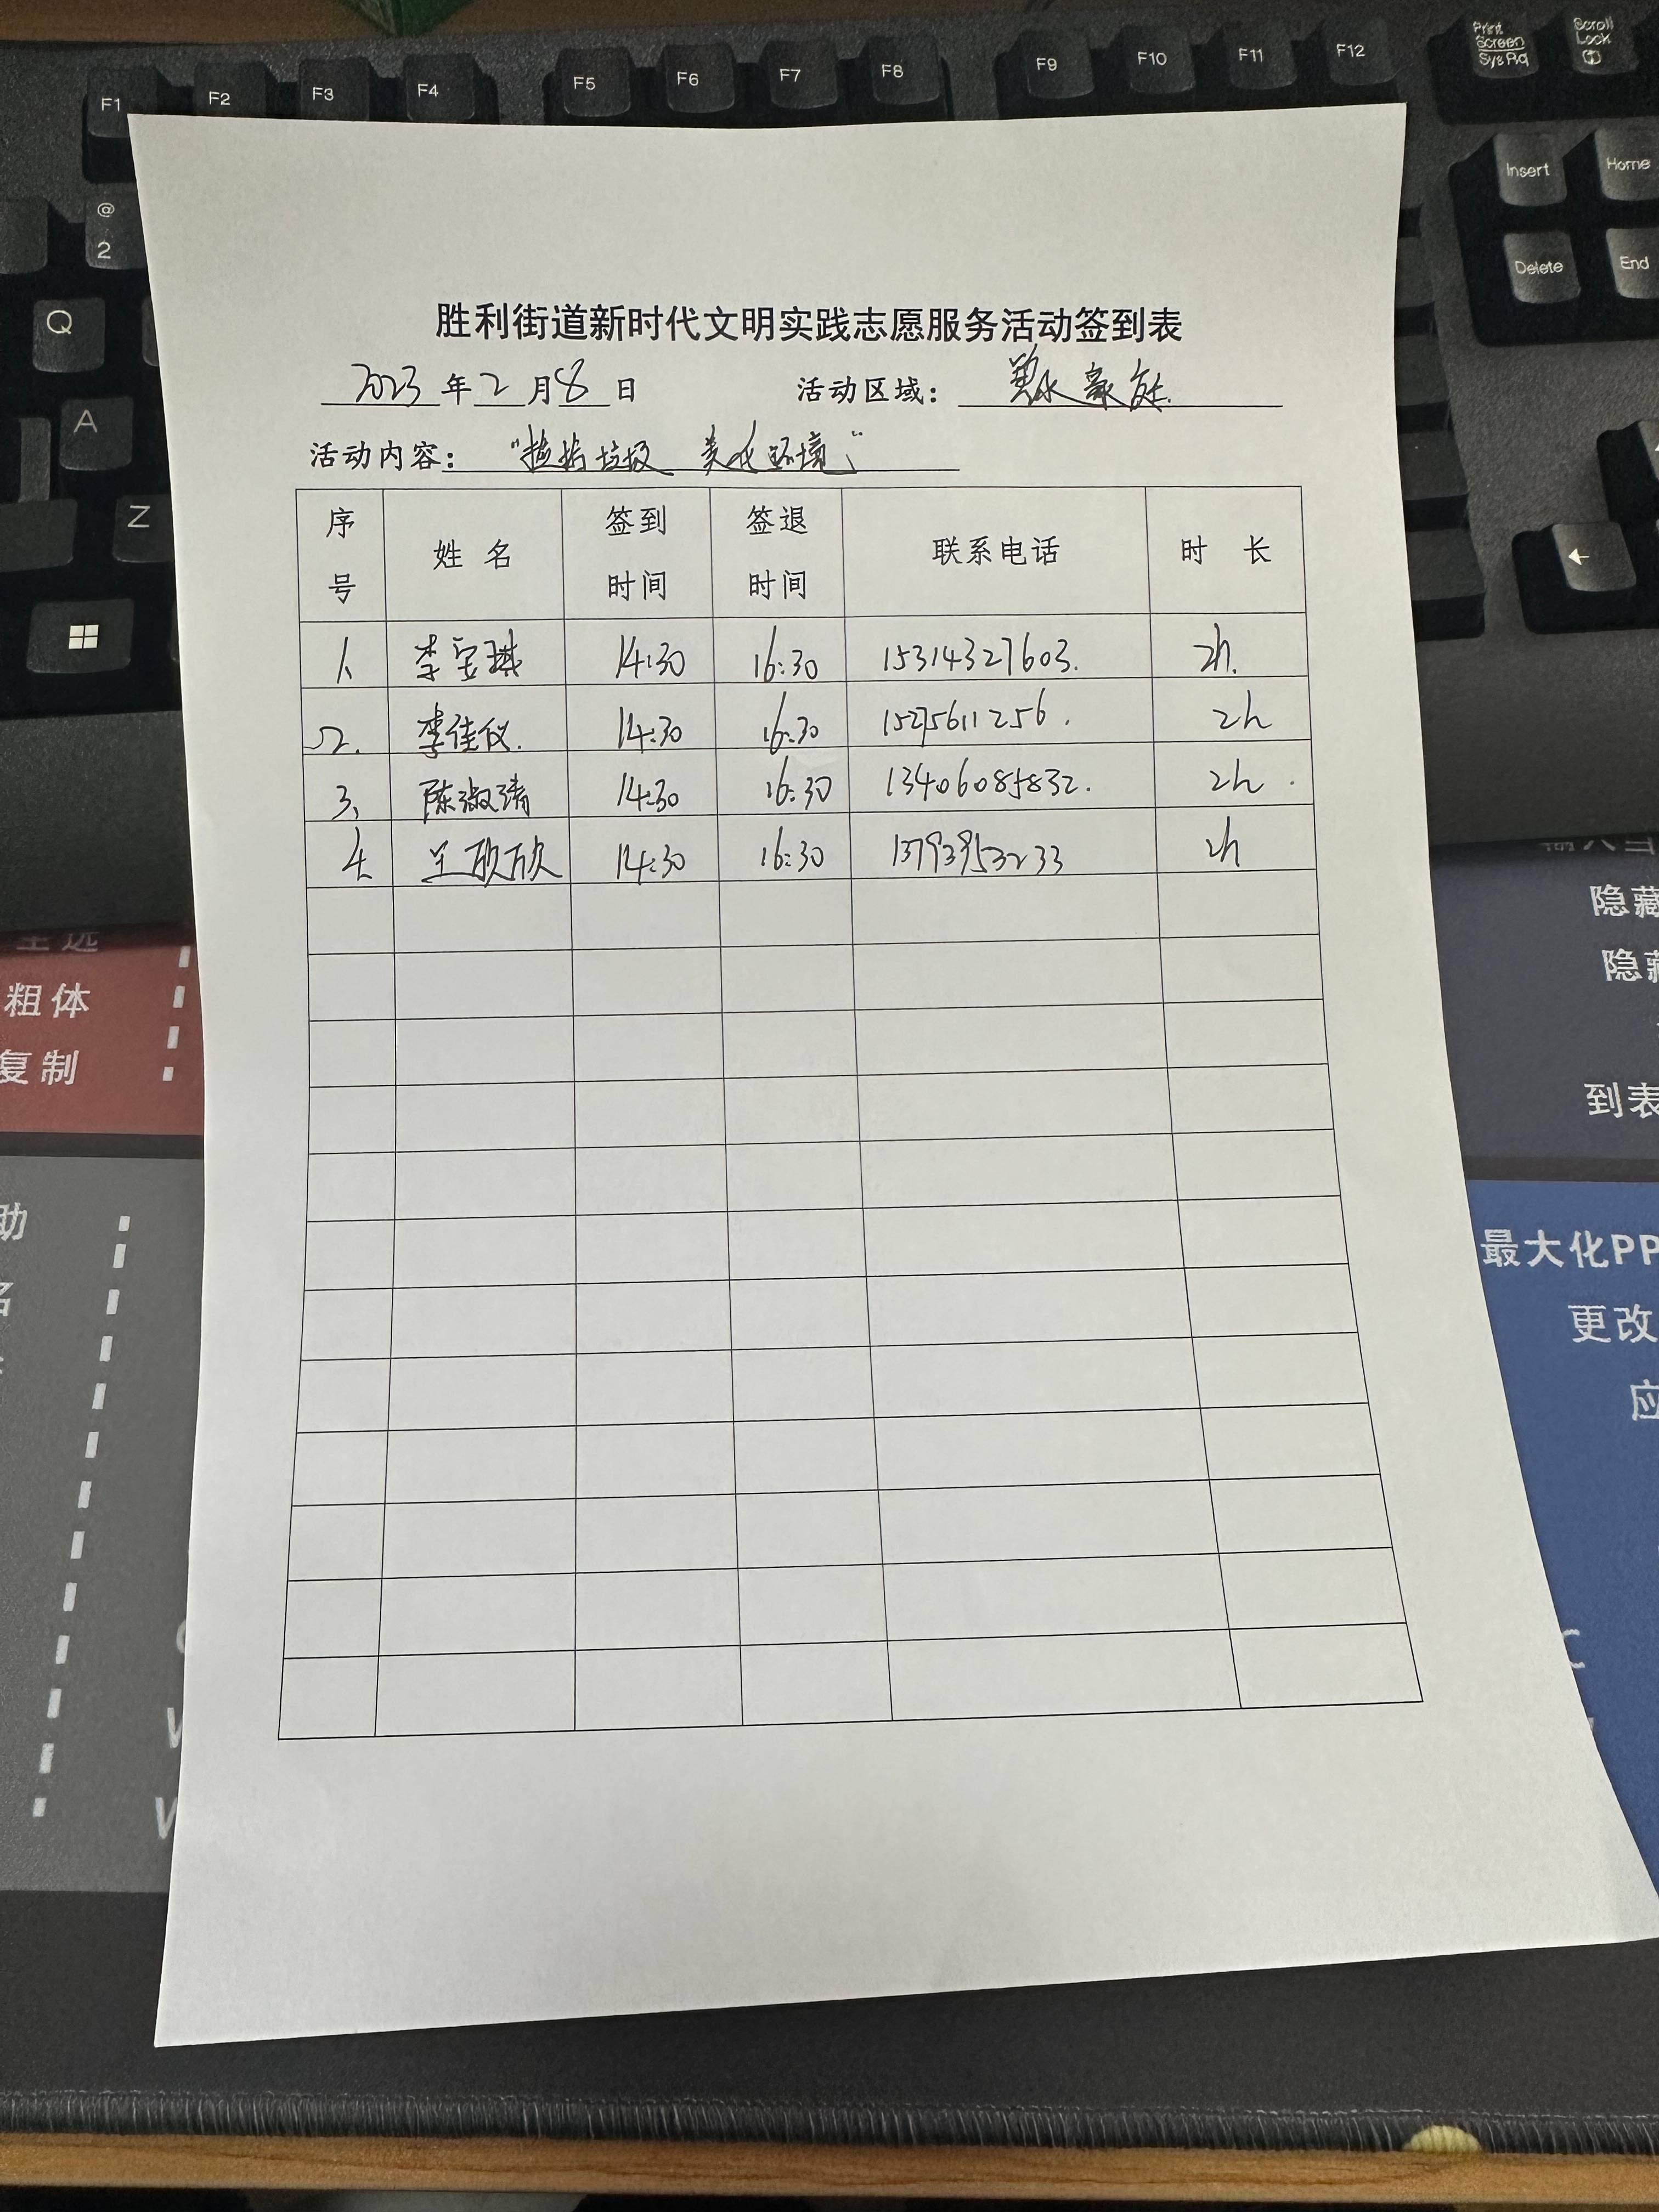 F1 F2 F3 F4 F5 F6 F7 F8 F9 F10 F11 F12 Print Screen SysRq Scroll Lock
Insert Home
@ 2
Delete End
Q
A
Z
胜利街道新时代文明实践志愿服务活动签到表
2023年2月8日 活动区域： 豪庭
活动内容： “捡拾垃圾 美化环境”
序号 姓名 签到时间 签退时间 联系电话 时长
1、 李宝琪 14:30 16:30 15314327603. 2h.
2. 李佳仪. 14:30 16:30 15275611256. 2h
3、 陈淑清 14:30 16:30 13406085832. 2h.
4. 王欣欣 14:30 16:30 13793953233 2h
全选
粗体
复制
助
名
隐藏
隐藏
到表
最大化PP
更改
应